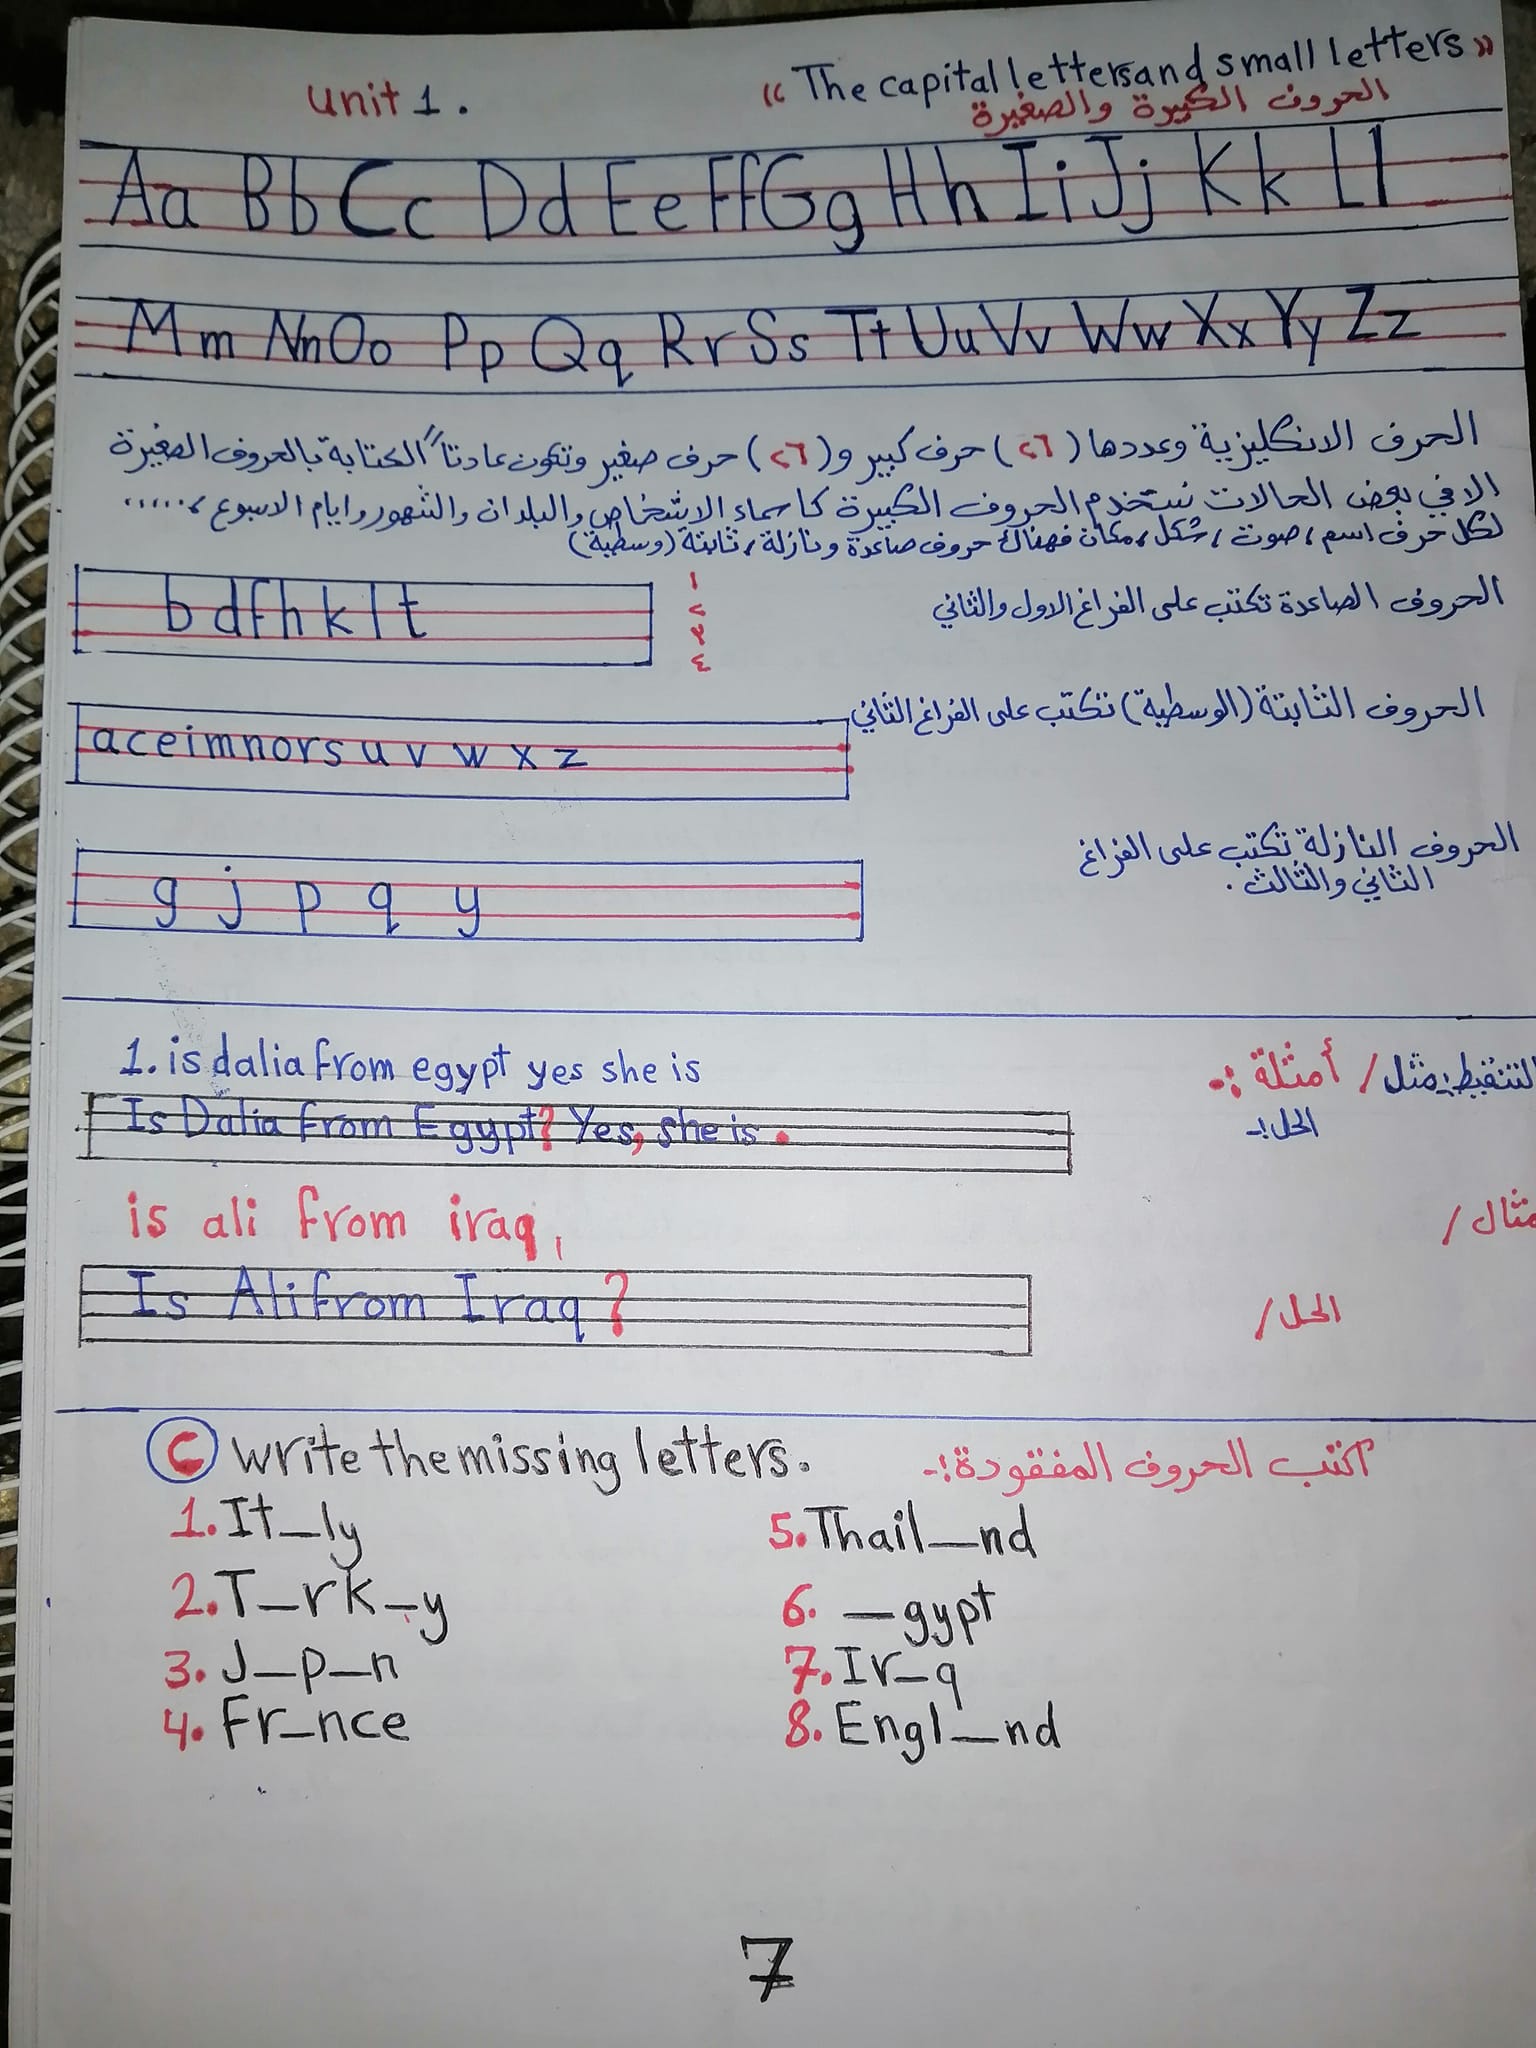 unit 1.
“The capital letters and small letters”
الحروف الكبيرة والصغيرة
Aa Bb Cc Dd Ee Ff Gg Hh Ii Jj Kk Ll
Mm Nn Oo Pp Qq Rr Ss Tt Uu Vv Ww Xx Yy Zz
الحرف الانكليزية وعددها (٢٦) حرف كبير و(٢٦) حرف صغير وتكون عادتاً الكتابة بالحروف الصغيرة
الا في بعض الحالات نستخدم الحروف الكبيرة كاسماء الاشخاص والبلدان والشهور وايام الاسبوع ،......
لكل حرف اسم ، صوت ، شكل ، مكان فهناك حروف صاعدة ونازلة ، ثابتة (وسطية)
الحروف الصاعدة تكتب على الفراغ الاول والثاني
b d f h k l t
١
٢
٣
٤
الحروف الثابتة (الوسطية) تكتب على الفراغ الثاني
a c e i m n o r s u v w x z
الحروف النازلة تكتب على الفراغ
الثاني والثالث .
g j p q y
التنقيط: مثل / أمثلة :-
1. is dalia from egypt yes she is
الحل :-
Is Dalia from Egypt? Yes, she is.
مثال /
is ali from iraq,
الحل /
Is Ali from Iraq?
C write the missing letters.
اكتب الحروف المفقودة :-
1. It_ly
2. T_rk_y
3. J_p_n
4. Fr_nce
5. Thail_nd
6. _gypt
7. Ir_q
8. Engl_nd
7